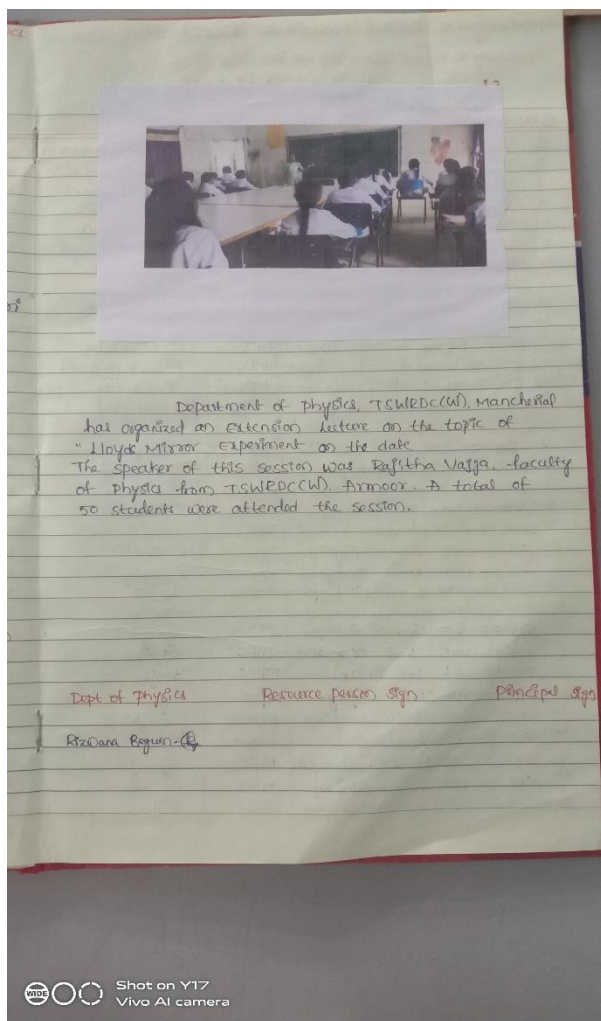 Department of Physics, TSWRDC(W), Mancherial
has organized an extension Lecture on the topic of
"Lloyds Mirror Experiment on the date
The speaker of this session was Rajitha Vajja, faculty
of Physics from TSWRDC(W), Armoor. A total of
50 students were attended the session.
Dept of Physics Resource person sign Principal sign
Rizwana Begum
WIDE
Shot on Y17
Vivo AI camera